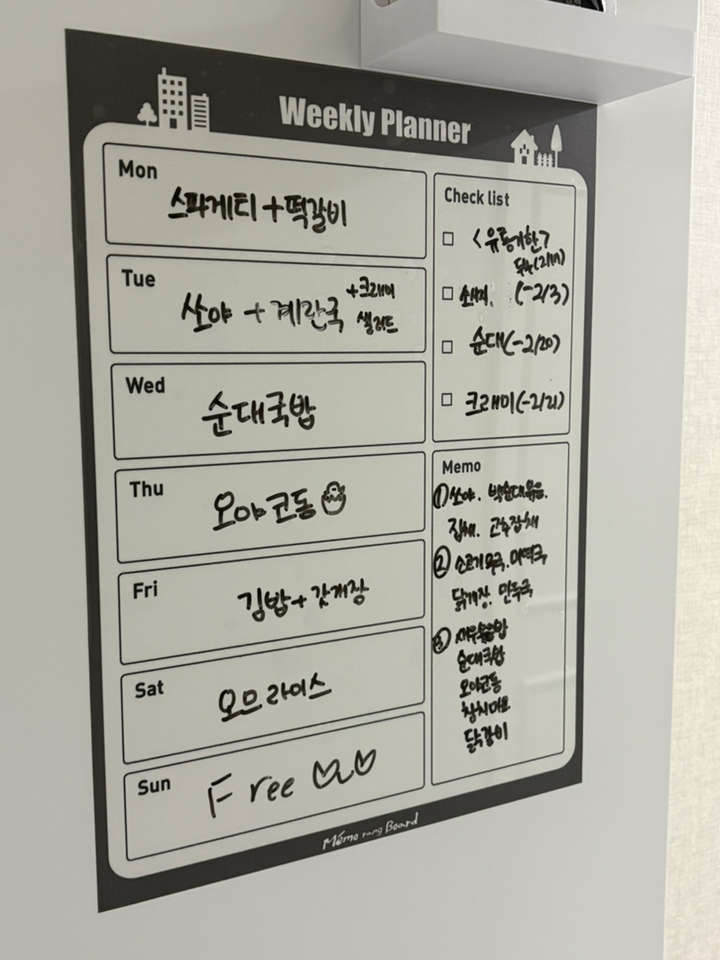 Weekly Planner
Mon
스파게티 + 떡갈비
Tue
쏘야 + 계란국 +크래미 샐러드
Wed
순대국밥
Thu
오야코동
Fri
김밥 + 갓게장
Sat
오므라이스
Sun
Free
Check list
<유통기한>
두부(2/19)
소세지. (~2/3)
순대(~2/20)
크래미(~2/21)
Memo
① 쏘야. 백순대볶음.
잡채. 고추잡채
② 소고기무국. 미역국
닭개장. 만둣국
③ 새우볶음밥
순대국밥
오야코동
참치마요
닭갈비
Mémo rang Board